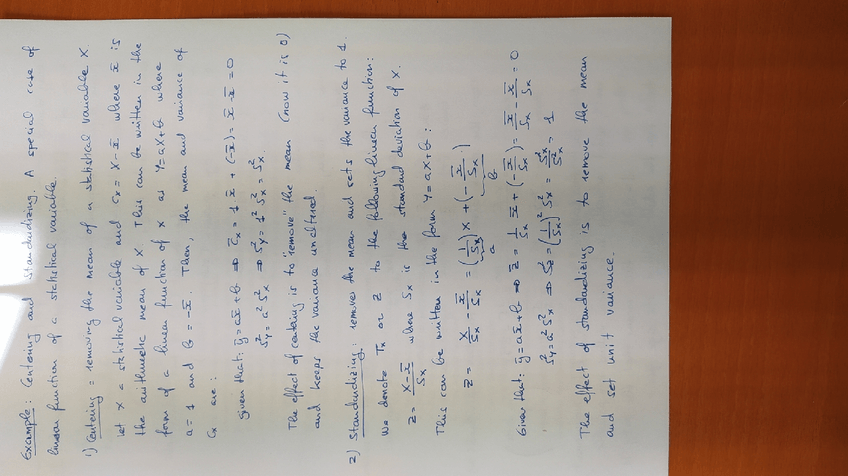 Example: Centering and standardizing. A special case of
linear function of a statistical variable.
1) Centering = removing the mean of a statistical variable X
Let X a statistical variable and Cx = X - x̄ where x̄ is
the arithmetic mean of X. This can be written in the
form of a linear function of X as Y = aX + b where
a = 1 and b = -x̄. Then, the mean and variance of
Cx are:
given that: ȳ = ax̄ + b ⇒ C̄x = 1·x̄ + (-x̄) = x̄ - x̄ = 0
S²y = a² S²x ⇒ S²y = 1² S²x = S²x.
The effect of centering is to "remove" the mean (now it is 0)
and keeps the variance unaltered.
2) Standardizing: removes the mean and sets the variance to 1.
We denote Tx or Z to the following linear function:
Z = (X - x̄)/Sx where Sx is the standard deviation of X.
This can be written in the form Y = aX + b:
Z = X/Sx - x̄/Sx = (1/Sx) X + (-x̄/Sx)
a b
Given that: ȳ = ax̄ + b ⇒ z̄ = 1/Sx x̄ + (-x̄/Sx) = x̄/Sx - x̄/Sx = 0
S²y = a² S²x ⇒ S²z = (1/Sx)² S²x = S²x/S²x = 1
The effect of standardizing is to remove the mean
and set unit variance.